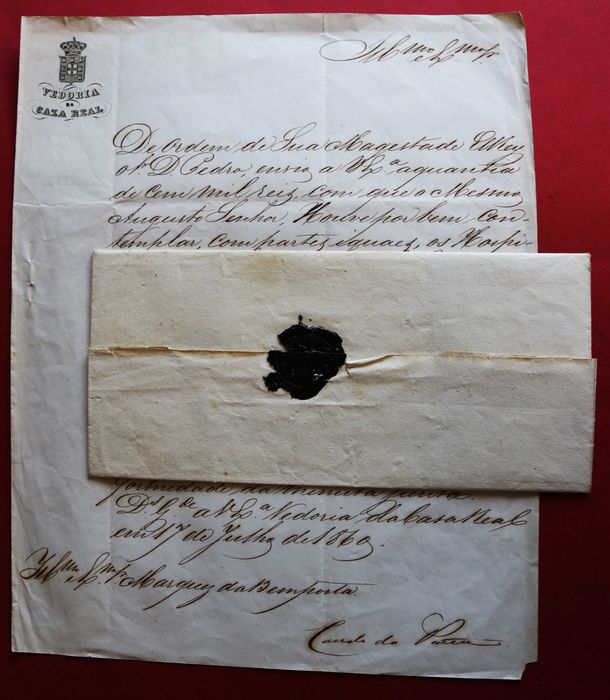 VEDORIA
DA
CAZA REAL
Illmo e Exmo Sr
De ordem de Sua Magestade ElRey
o Sr D. Pedro, envio a V. Exa a quantia
de cem mil reis, com que o Mesmo
Augusto Senhor, Houve por bem con-
templar, com partes iguaes, os Hospi-
formidade da minuta junta.
Ds Gde a V. Exa Vedoria da Casa Real
em 17 de Julho de 1860.
Illmo e Exmo Sr Marquez da Bemposta
Conde da Ponte